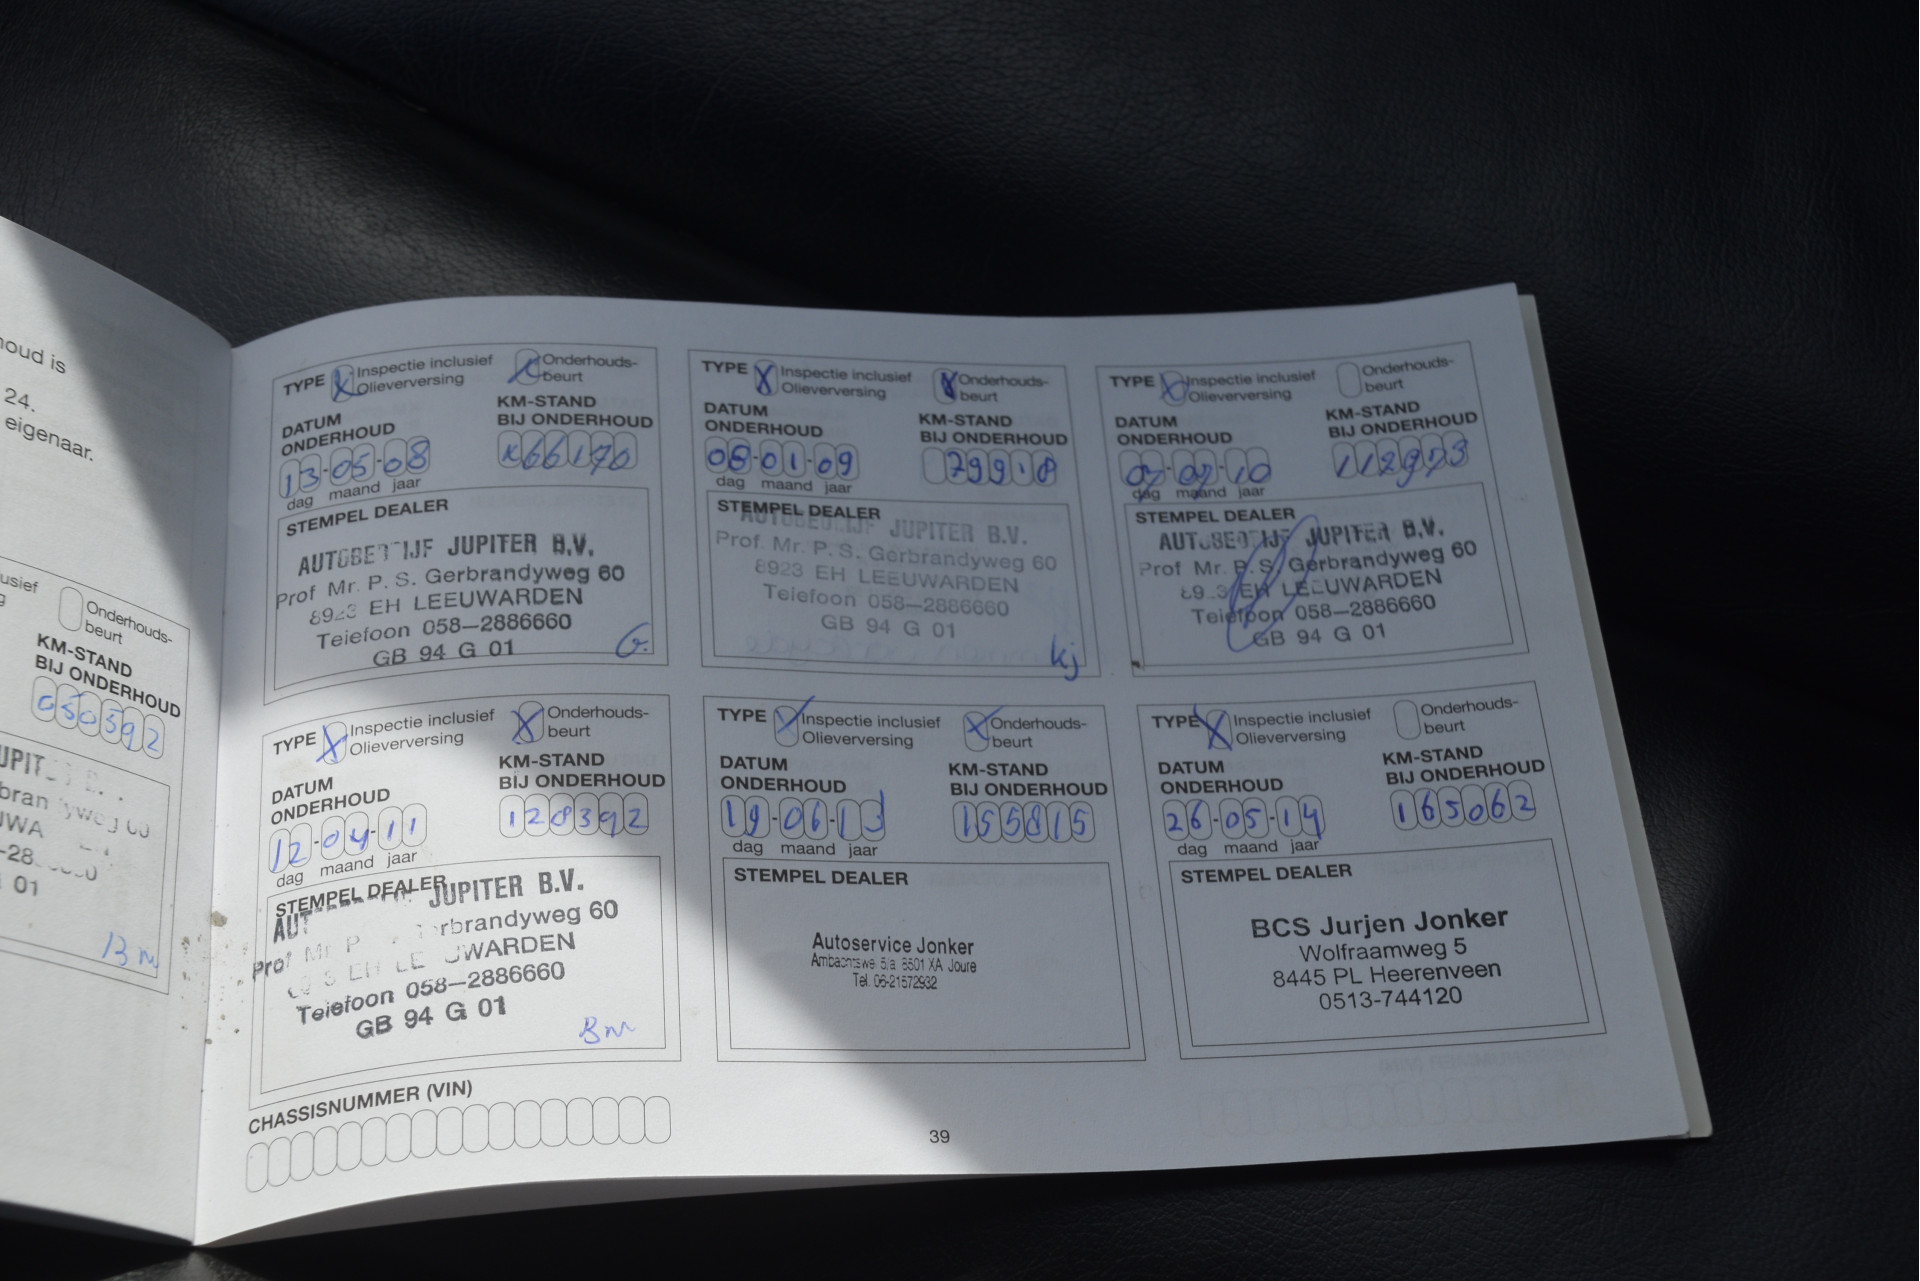 oud is
24.
eigenaar.
Onderhouds-
beurt
KM-STAND
BIJ ONDERHOUD
050592
01
Bm
TYPE X Inspectie inclusief Olieverversing X Onderhouds-beurt
DATUM ONDERHOUD
KM-STAND BIJ ONDERHOUD
13-05-08
x66170
dag maand jaar
STEMPEL DEALER
AUTOBEDRIJF JUPITER B.V.
Prof Mr. P. S. Gerbrandyweg 60
8923 EH LEEUWARDEN
Telefoon 058-2886660
GB 94 G 01
G.
TYPE X Inspectie inclusief Olieverversing X Onderhouds-beurt
DATUM ONDERHOUD
KM-STAND BIJ ONDERHOUD
08-01-09
dag maand jaar
STEMPEL DEALER
AUTOBEDRIJF JUPITER B.V.
Prof. Mr. P. S. Gerbrandyweg 60
8923 EH LEEUWARDEN
Telefoon 058-2886660
GB 94 G 01
kj
TYPE X Inspectie inclusief Olieverversing Onderhouds-beurt
DATUM ONDERHOUD
KM-STAND BIJ ONDERHOUD
112973
dag maand jaar
STEMPEL DEALER
AUTOBEDRIJF JUPITER B.V.
Prof Mr. P. S. Gerbrandyweg 60
8923 EH LEEUWARDEN
Telefoon 058-2886660
GB 94 G 01
TYPE X Inspectie inclusief Olieverversing X Onderhouds-beurt
DATUM ONDERHOUD
KM-STAND BIJ ONDERHOUD
12-04-11
128392
dag maand jaar
STEMPEL DEALER
JUPITER B.V.
Prof Mr P rbrandyweg 60
EH LE UWARDEN
Telefoon 058-2886660
GB 94 G 01
Bm
TYPE X Inspectie inclusief Olieverversing X Onderhouds-beurt
DATUM ONDERHOUD
KM-STAND BIJ ONDERHOUD
19-06-13
155815
dag maand jaar
STEMPEL DEALER
Autoservice Jonker
5/a 8501 XA Joure
Tel. 06-21572932
TYPE X Inspectie inclusief Olieverversing Onderhouds-beurt
DATUM ONDERHOUD
KM-STAND BIJ ONDERHOUD
26-05-14
165062
dag maand jaar
STEMPEL DEALER
BCS Jurjen Jonker
Wolfraamweg 5
8445 PL Heerenveen
0513-744120
CHASSISNUMMER (VIN)
39